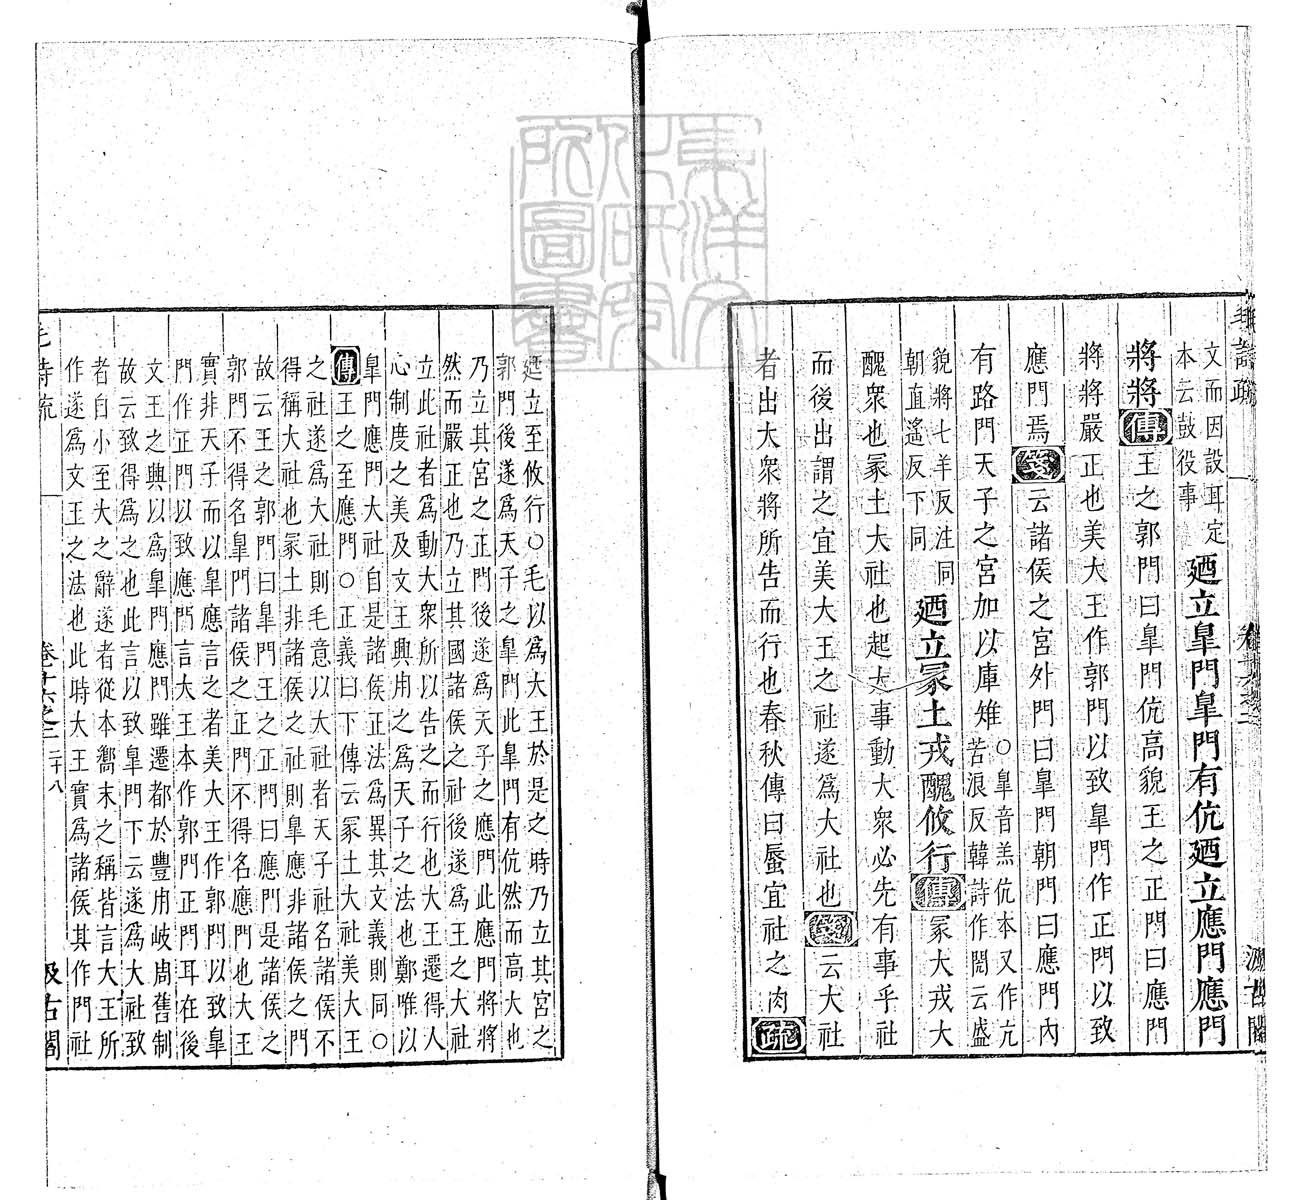 毛詩疏
文而因設耳定
本云鼓役事
廼立皐門皐門有伉廼立應門應門
將將傳王之郭門曰皐門伉高貌王之正門曰應門
將將嚴正也美大王作郭門以致皐門作正門以致
應門焉箋云諸侯之宮外門曰皐門朝門曰應門內
有路門天子之宮加以庫雉
○皐音羔伉本又作亢
苦浪反韓詩作閌云盛
貌將七羊反注同
朝直遙反下同
廼立冢土戎醜攸行傳冢大戎大
醜衆也冢土大社也起大事動大衆必先有事乎社
而後出謂之宜美大王之社遂爲大社也箋云大社
者出大衆將所告而行也春秋傳曰蜃宜社之肉疏
廼立至攸行○毛以爲大王於是之時乃立其宮之
郭門後遂爲天子之皐門此皐門有伉然而高大也
乃立其宮之正門後遂爲天子之應門此應門將將
然而嚴正也乃立其國諸侯之社後遂爲王之大社
立此社者爲動大衆所以告之而行也大王遷得人
心制度之美及文王興用之爲天子之法也鄭唯以
皐門應門大社自是諸侯正法爲異其文義則同○
傳王之至應門○正義曰下傳云冢土大社美大王
之社遂爲大社則毛意以大社者天子社名諸侯不
得稱大社也冢土非諸侯之社則皐應非諸侯之門
故云王之郭門曰皐門王之正門曰應門是諸侯之
郭門不得名皐門諸侯之正門不得名應門也大王
實非天子而以皐應言之者美大王作郭門以致皐
門作正門以致應門言大王本作郭門正門耳在後
文王之興以爲皐門應門雖遷都於豐用岐周舊制
故云致得爲之也此言以致皐門下云遂爲大社致
者自小至大之辭遂者從本嚮末之稱皆言大王所
作遂爲文王之法也此時大王實爲諸侯其作門社
毛詩疏
卷十六之二
二十八
汲古閣